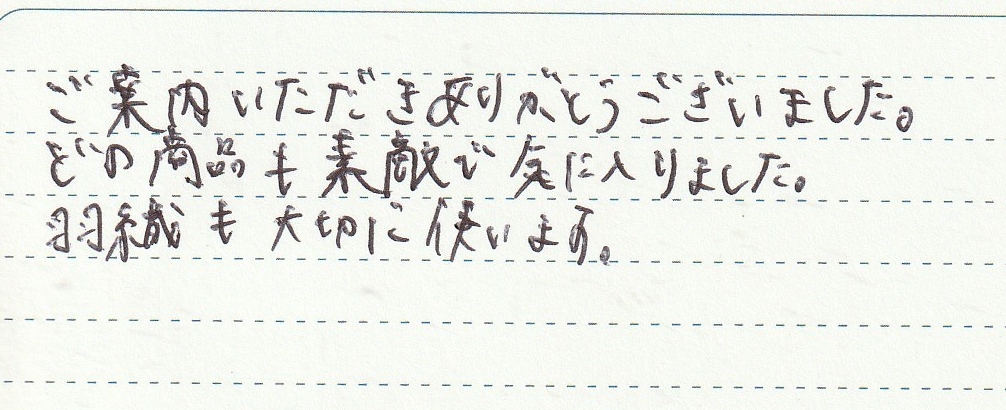 ご案内いただきありがとうございました。
どの商品も素敵で気に入りました。
羽織も大切に使います。